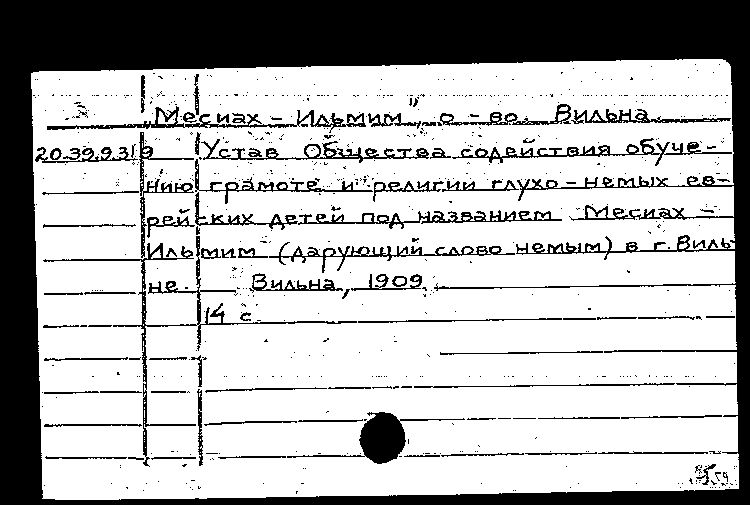 „Месиах - Ильмим", о - во. Вильна
20.39.9.319 Устав Общества содействия обуче-
нию грамоте и религии глухо-немых ев-
рейских детей под названием Месиах -
Ильмим (дарующий слово немым) в г. Виль-
не. Вильна, 1909.
14 с.